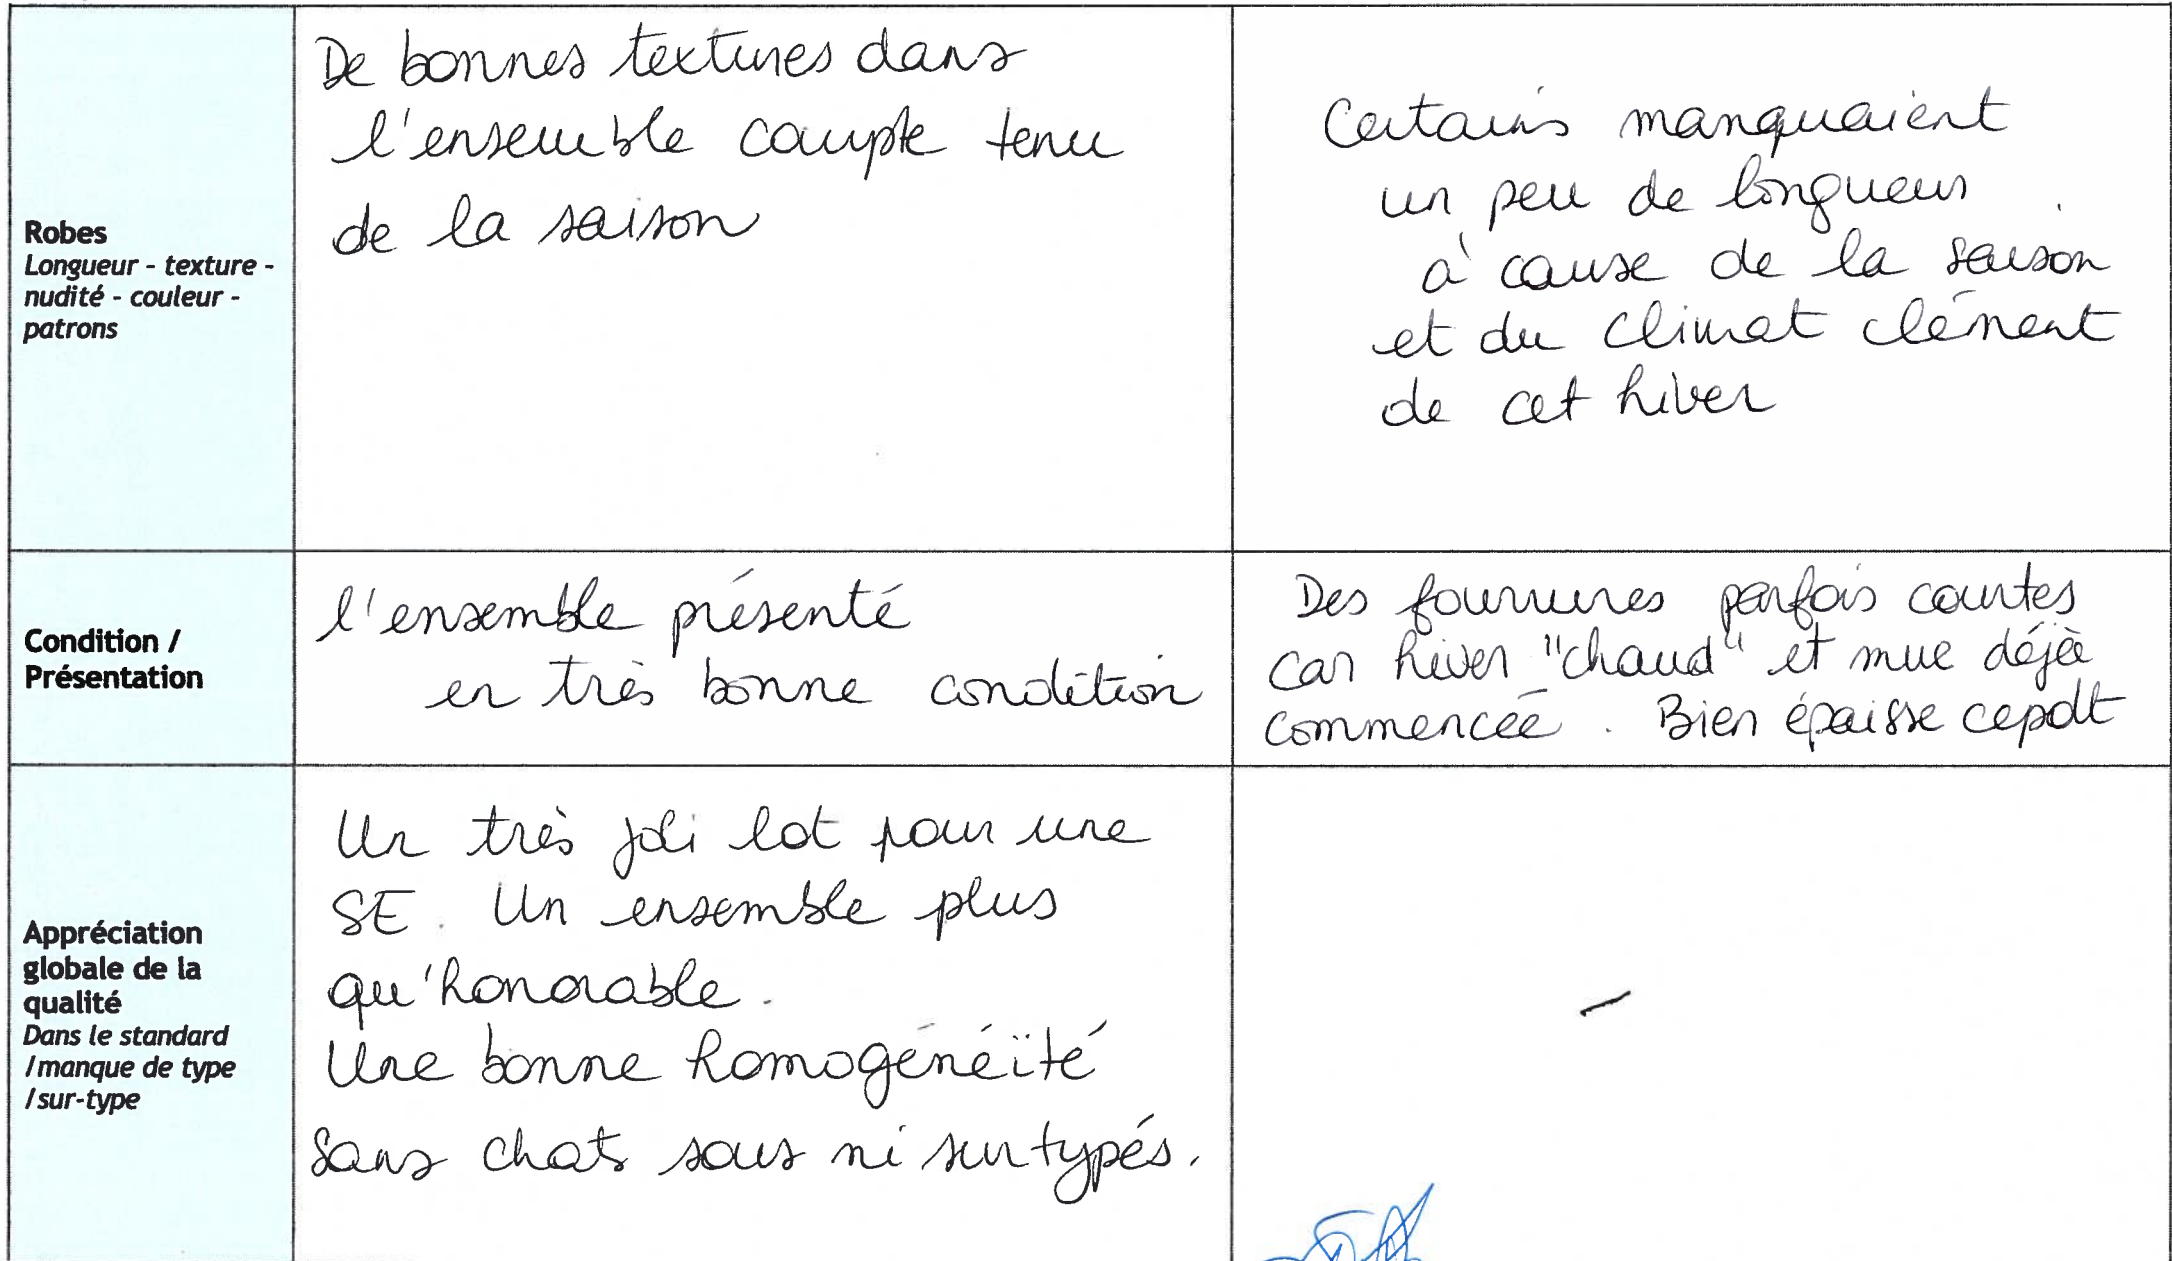 Robes
Longueur - texture -
nudité - couleur -
patrons
De bonnes textures dans
l'ensemble compte tenu
de la saison
Certains manquaient
un peu de longueur
à cause de la saison
et du climat clément
de cet hiver
Condition /
Présentation
l'ensemble présenté
en très bonne condition
Des fourrures parfois courtes
car hiver "chaud" et mue déjà
commencée. Bien épaisse cepdt
Appréciation
globale de la
qualité
Dans le standard
/manque de type
/sur-type
Un très joli lot pour une
SE. Un ensemble plus
qu'honorable.
Une bonne homogénéïté
Sans chats sous ni surtypés.
-